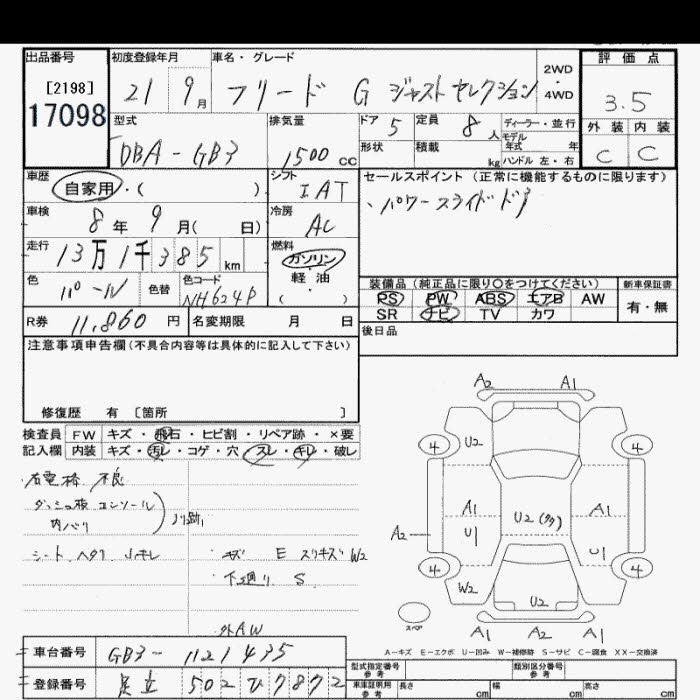 出品番号 初度登録年月 車名・グレード 評価点
[2198] 17098
21 9月 フリード G ジャストセレクション 2WD・4WD 3.5
型式 排気量 ドア 定員 ディーラー・並行 外装 内装
DBA-GB3 1500cc 5 8人 モデル年式 年 C C
形状 積載 kg ハンドル 左・右
車歴 シフト セールスポイント (正常に機能するものに限ります)
自家用・( ) IAT 、パワースライドドア
車検 冷房
8年9月( 日) AC
走行 燃料
13万1千385km ガソリン・軽油・( )
色 色替 色コード 装備品 (純正品に限り○をつけてください) 新車保証書
パール NH624P PS PW ABS エアB AW 有・無
SR ナビ TV カワ
R券 11,860円 名変期限 月 日 後日品
注意事項申告欄(不具合内容等は具体的に記入して下さい)
修復歴 有 [箇所 ]
検査員 FW キズ・飛石・ヒビ割・リペア跡・×要
記入欄 内装 キズ・汚レ・コゲ・穴・スレ・キレ・破レ
右電格 不良
ダッシュ板 コンソール
内バリ
ノリ跡
シート ヘタリ 小キレ
・キズ E スリキズ W2
・下廻り S
外AW
A2 A1
4 U2 4
A1 A1
A2 U1 U2(タタ) U1
4 4
W2 U2
スペア A1 A2 A1
A-キズ E-エクボ U-凹み W-補修跡 S-サビ C-腐食 XX-交換済
車台番号 GB3-1121435
型式指定番号 参考 類別区分番号 参考
登録番号 足立 502 ひ 7872
車庫証明用 参考 長さ cm 幅 cm 高さ cm